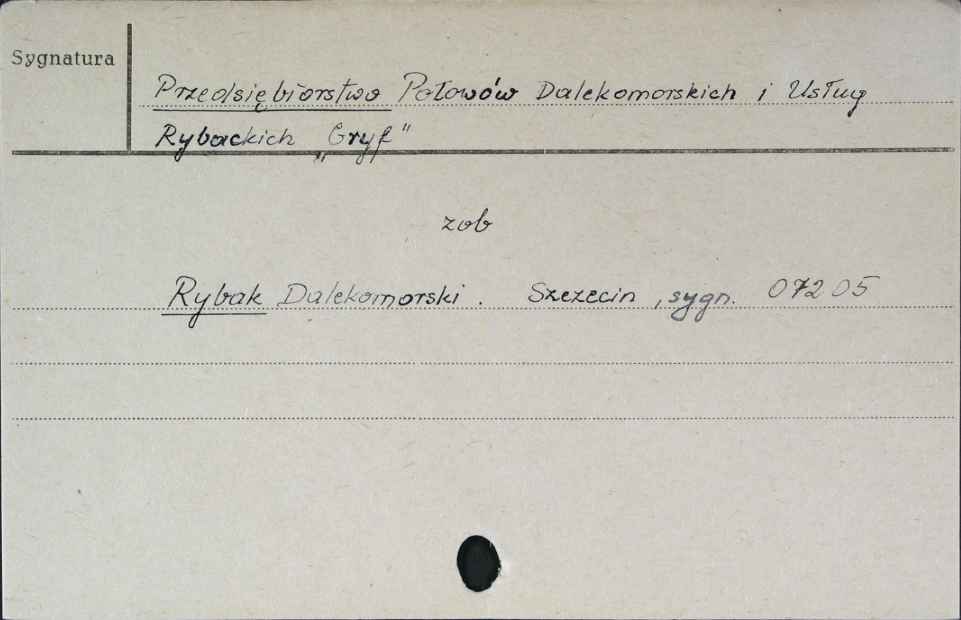 Sygnatura
Przedsiębiorstwo Połowów Dalekomorskich i Usług
Rybackich „Gryf"
zob
Rybak Dalekomorski. Szczecin, sygn. 07205